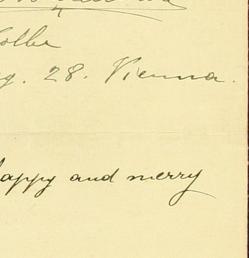 Kolbe
g. 28. Vienna.
happy and merry